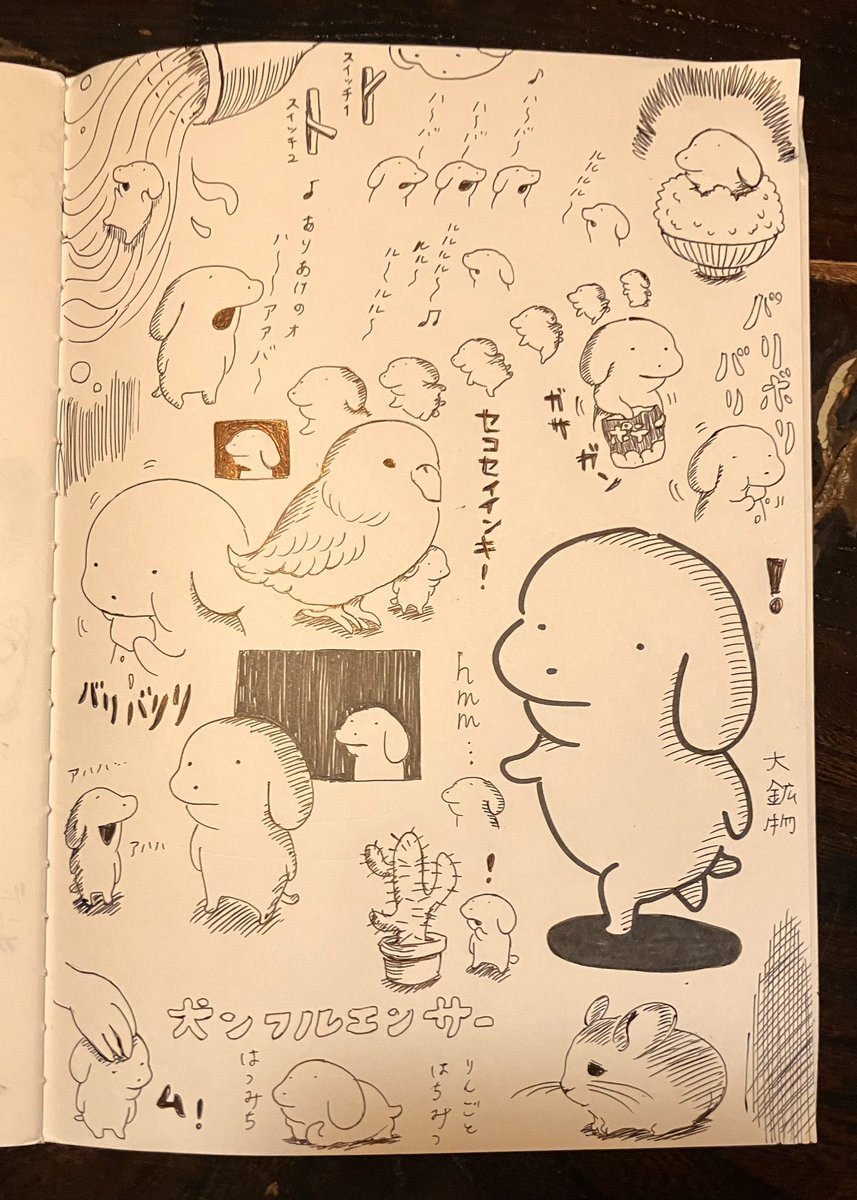 スイッチ1
スイッチ2
♪
ハ〜バ〜
ハ〜バ〜
ハ〜バ〜
ルルルル〜
♪ありあけのオ
ハ〜〜アアバ〜
ルルルル〜
ルルルルル〜
♫
バリボリ
バリ
ガサ
ガソ
ポテチ
セコセイインキ!
!
バリバリリ
hmm…
大鉱物
アハハ…
アハハ
!
犬ンフルエンサー
ム!
はつみち
りんごと
はちみつ